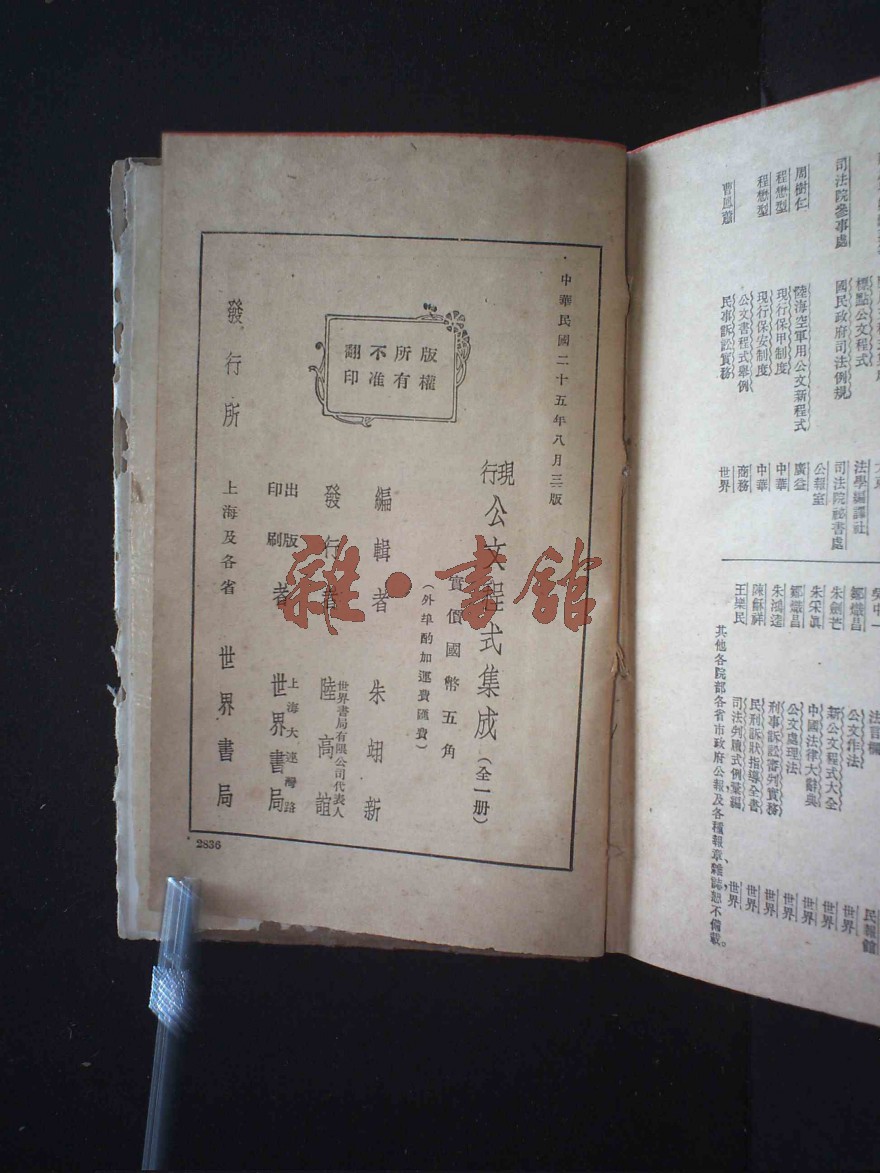 中華民國二十五年八月三版
現行公文程式集成（全一册）
實價國幣五角
（外埠酌加運費匯費）
編輯者　朱翊新
發行者　世界書局有限公司代表人　陸高誼
出版印刷者　上海大連灣路　世界書局
發行所　上海及各省　世界書局
版權所有
不准翻印
2836
雜·書館
標點公文程式　法學編譯社
司法院參事處　國民政府司法例規　司法院祕書處
陸海空軍用公文新程式　公報室
周樹仁　現行保甲制度　廣益
程懋型　現行保安制度　中華
程懋型　公文書程式舉例　中華
商務
曹鳳蕭　民事訴訟實務　世界
民報館
鄒熾昌　公文作法　世界
朱劍芒　新公文程式大全　世界
朱采真　中國法律大辭典　世界
鄒熾昌　公文處理法　世界
朱鴻達　刑事訴訟審判實務　世界
陳穌祥　民刑訴狀指導全書　世界
王樂民　司法判牘式例彙編　世界
其他各院部各省市政府公報及各種報章雜誌恕不備載。